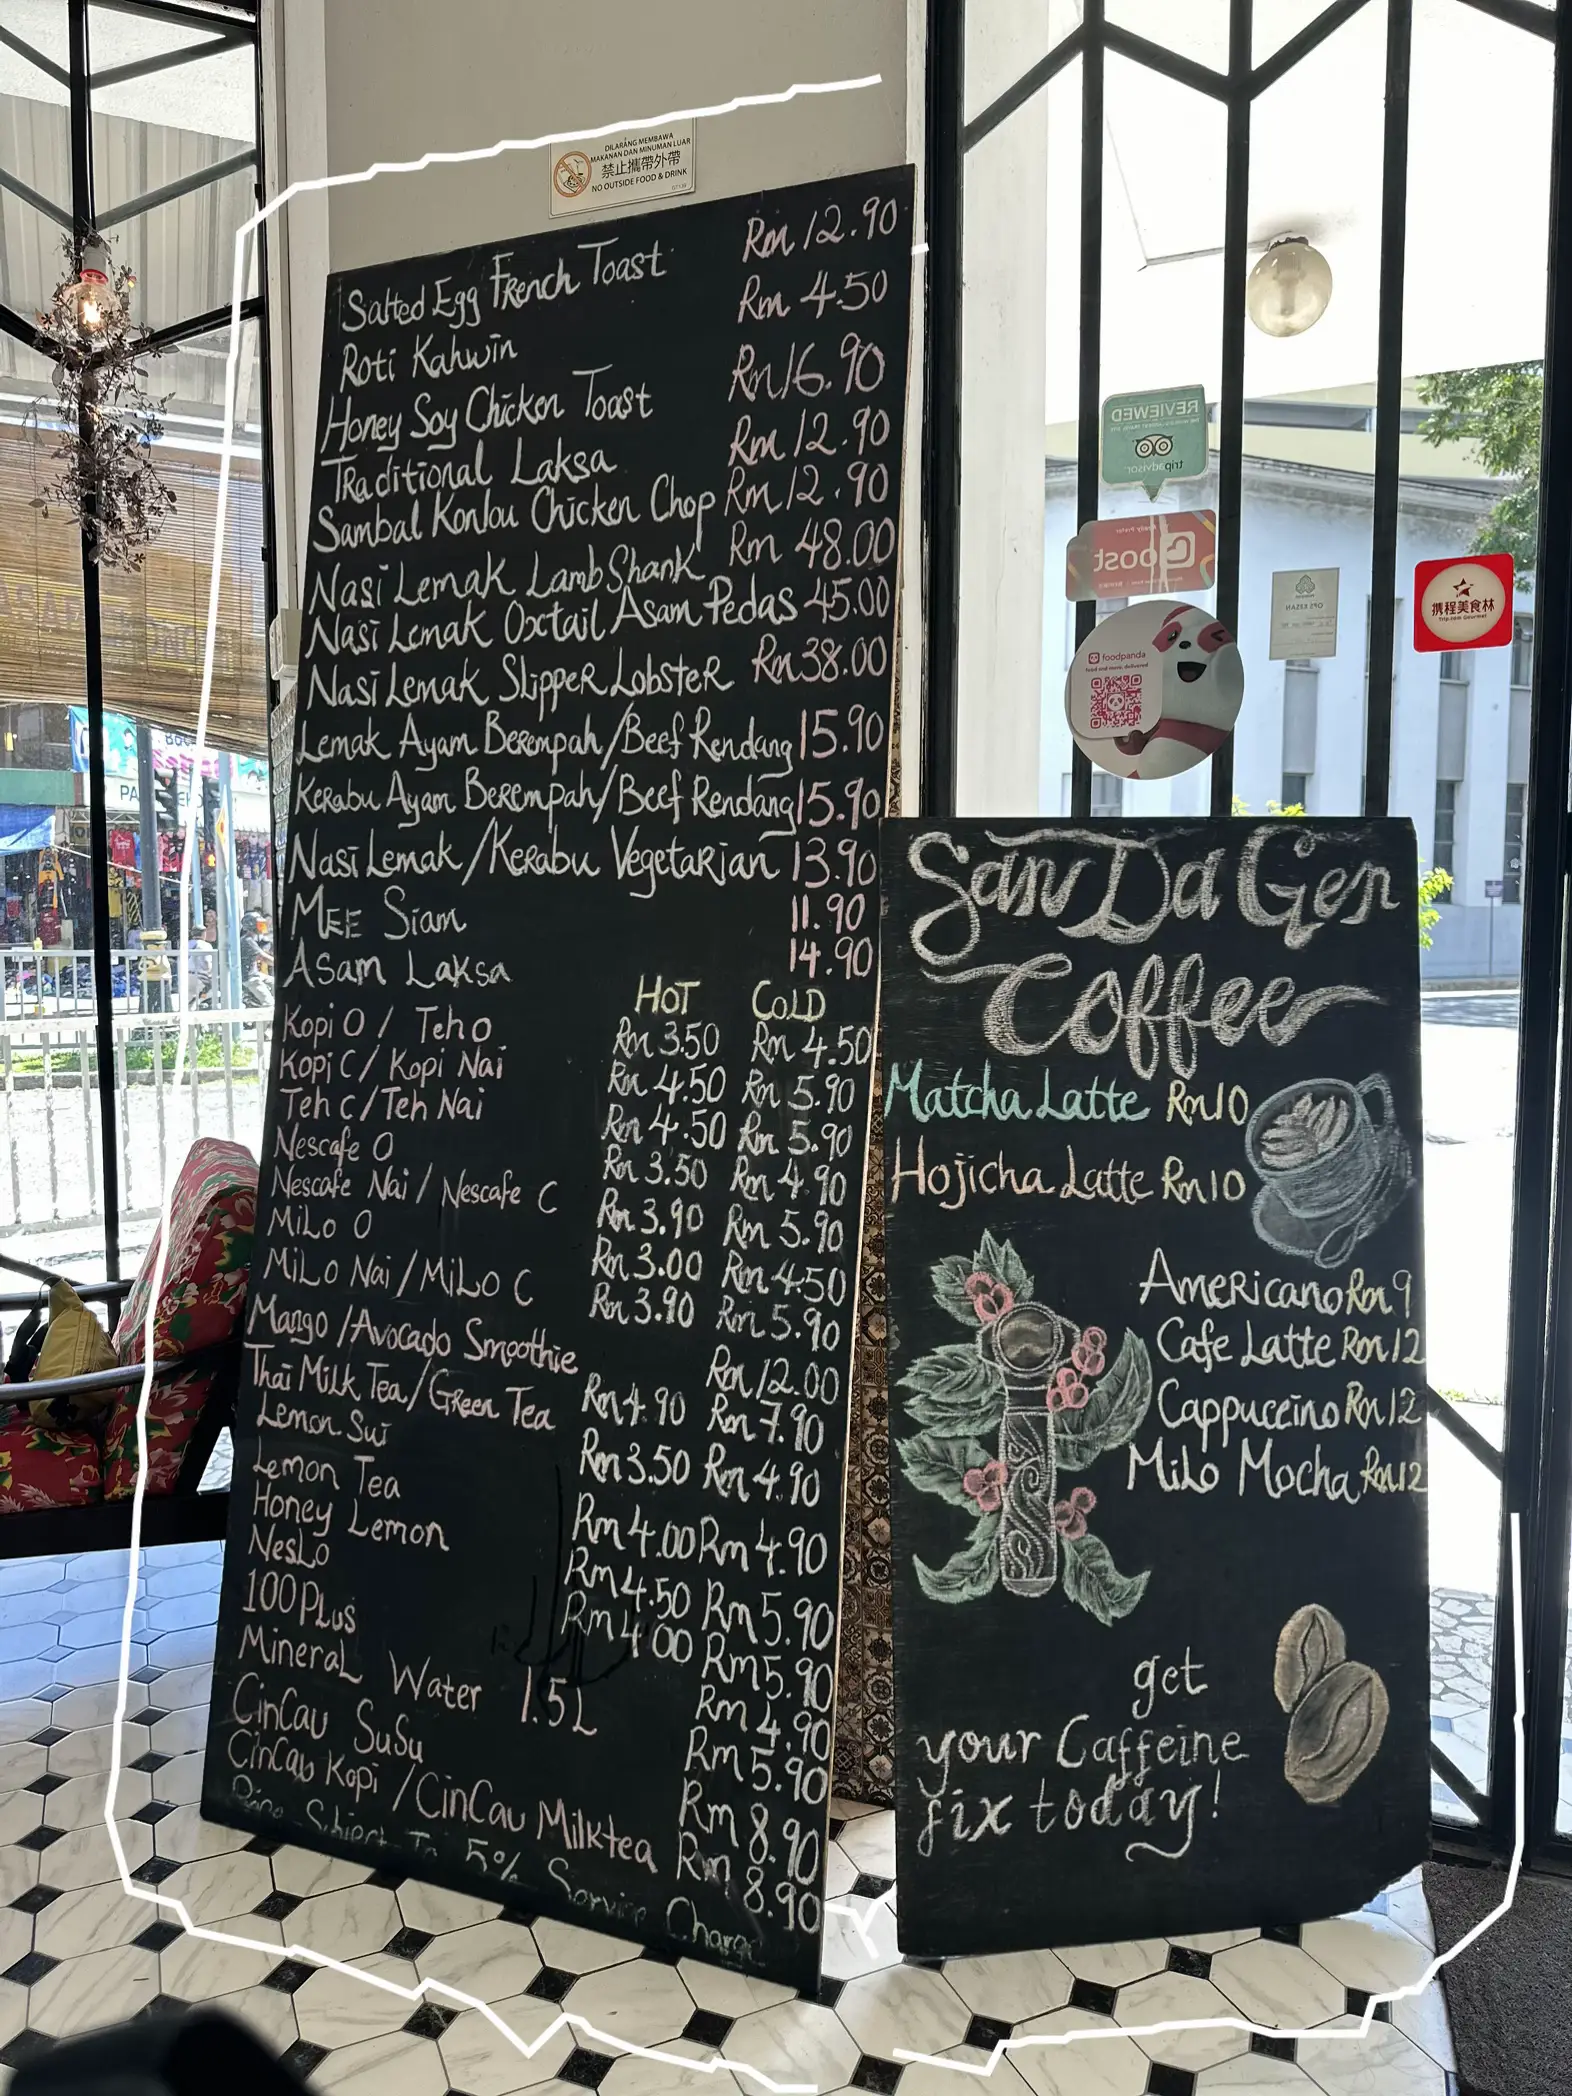 DILARANG MEMBAWA
MAKANAN DAN MINUMAN LUAR
禁止攜帶外帶
NO OUTSIDE FOOD & DRINK
Salted Egg French Toast Rm 12.90
Roti Kahwin Rm 4.50
Honey Soy Chicken Toast Rm 16.90
Traditional Laksa Rm 12.90
Sambal Konlou Chicken Chop Rm 12.90
Nasi Lemak Lamb Shank Rm 48.00
Nasi Lemak Oxtail Asam Pedas 45.00
Nasi Lemak Slipper Lobster Rm 38.00
Lemak Ayam Berempah/Beef Rendang 15.90
Kerabu Ayam Berempah/Beef Rendang 15.90
Nasi Lemak/Kerabu Vegetarian 13.90
Mee Siam 11.90
Asam Laksa 14.90
HOT COLD
Kopi O / Teh O Rm 3.50 Rm 4.50
Kopi C / Kopi Nai Rm 4.50 Rm 5.90
Teh C / Teh Nai Rm 4.50 Rm 5.90
Nescafe O Rm 3.50 Rm 4.90
Nescafe Nai / Nescafe C Rm 3.90 Rm 5.90
Milo O Rm 3.00 Rm 4.50
Milo Nai / Milo C Rm 3.90 Rm 5.90
Mango / Avocado Smoothie Rm 12.00
Thai Milk Tea / Green Tea Rm 4.90 Rm 7.90
Lemon Sui Rm 3.50 Rm 4.90
Lemon Tea Rm 4.00 Rm 4.90
Honey Lemon Rm 4.50 Rm 5.90
Neslo Rm 4.00 Rm 5.90
100 Plus Rm 4.90
Mineral Water 1.5L Rm 5.90
CinCau SuSu Rm 8.90
CinCau Kopi / CinCau Milktea Rm 8.90
Subject To 5% Service Charge
San Da Gen
Coffee
Matcha Latte Rm 10
Hojicha Latte Rm 10
Americano Rm 9
Cafe Latte Rm 12
Cappuccino Rm 12
Milo Mocha Rm 12
get
your Caffeine
fix today!
REVIEWED
tripadvisor
foodpanda
food and more, delivered
携程美食林
Trip.com Gourmet